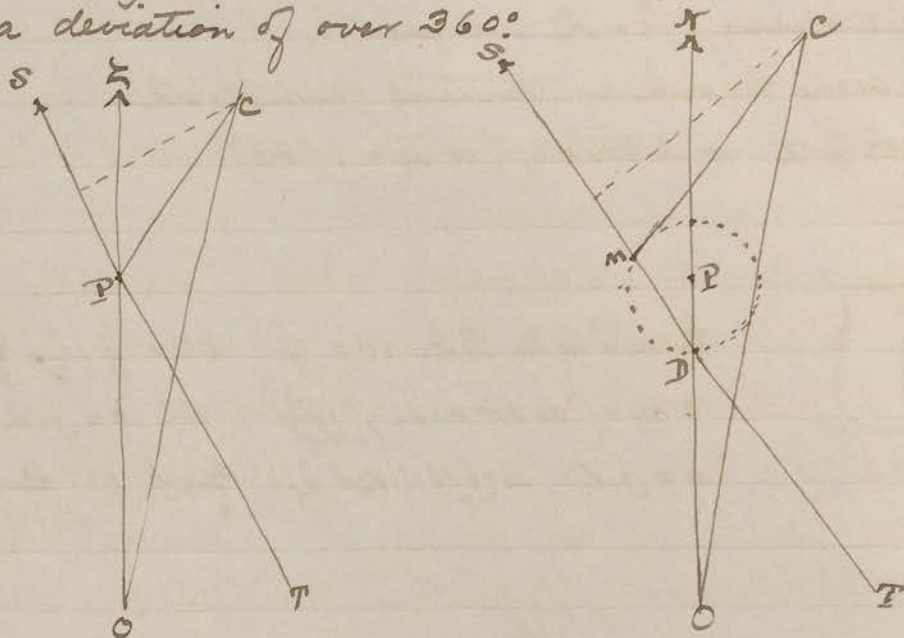 a deviation of over 360°
S
C
P
O
T
N
C
S
M
P
D
O
T